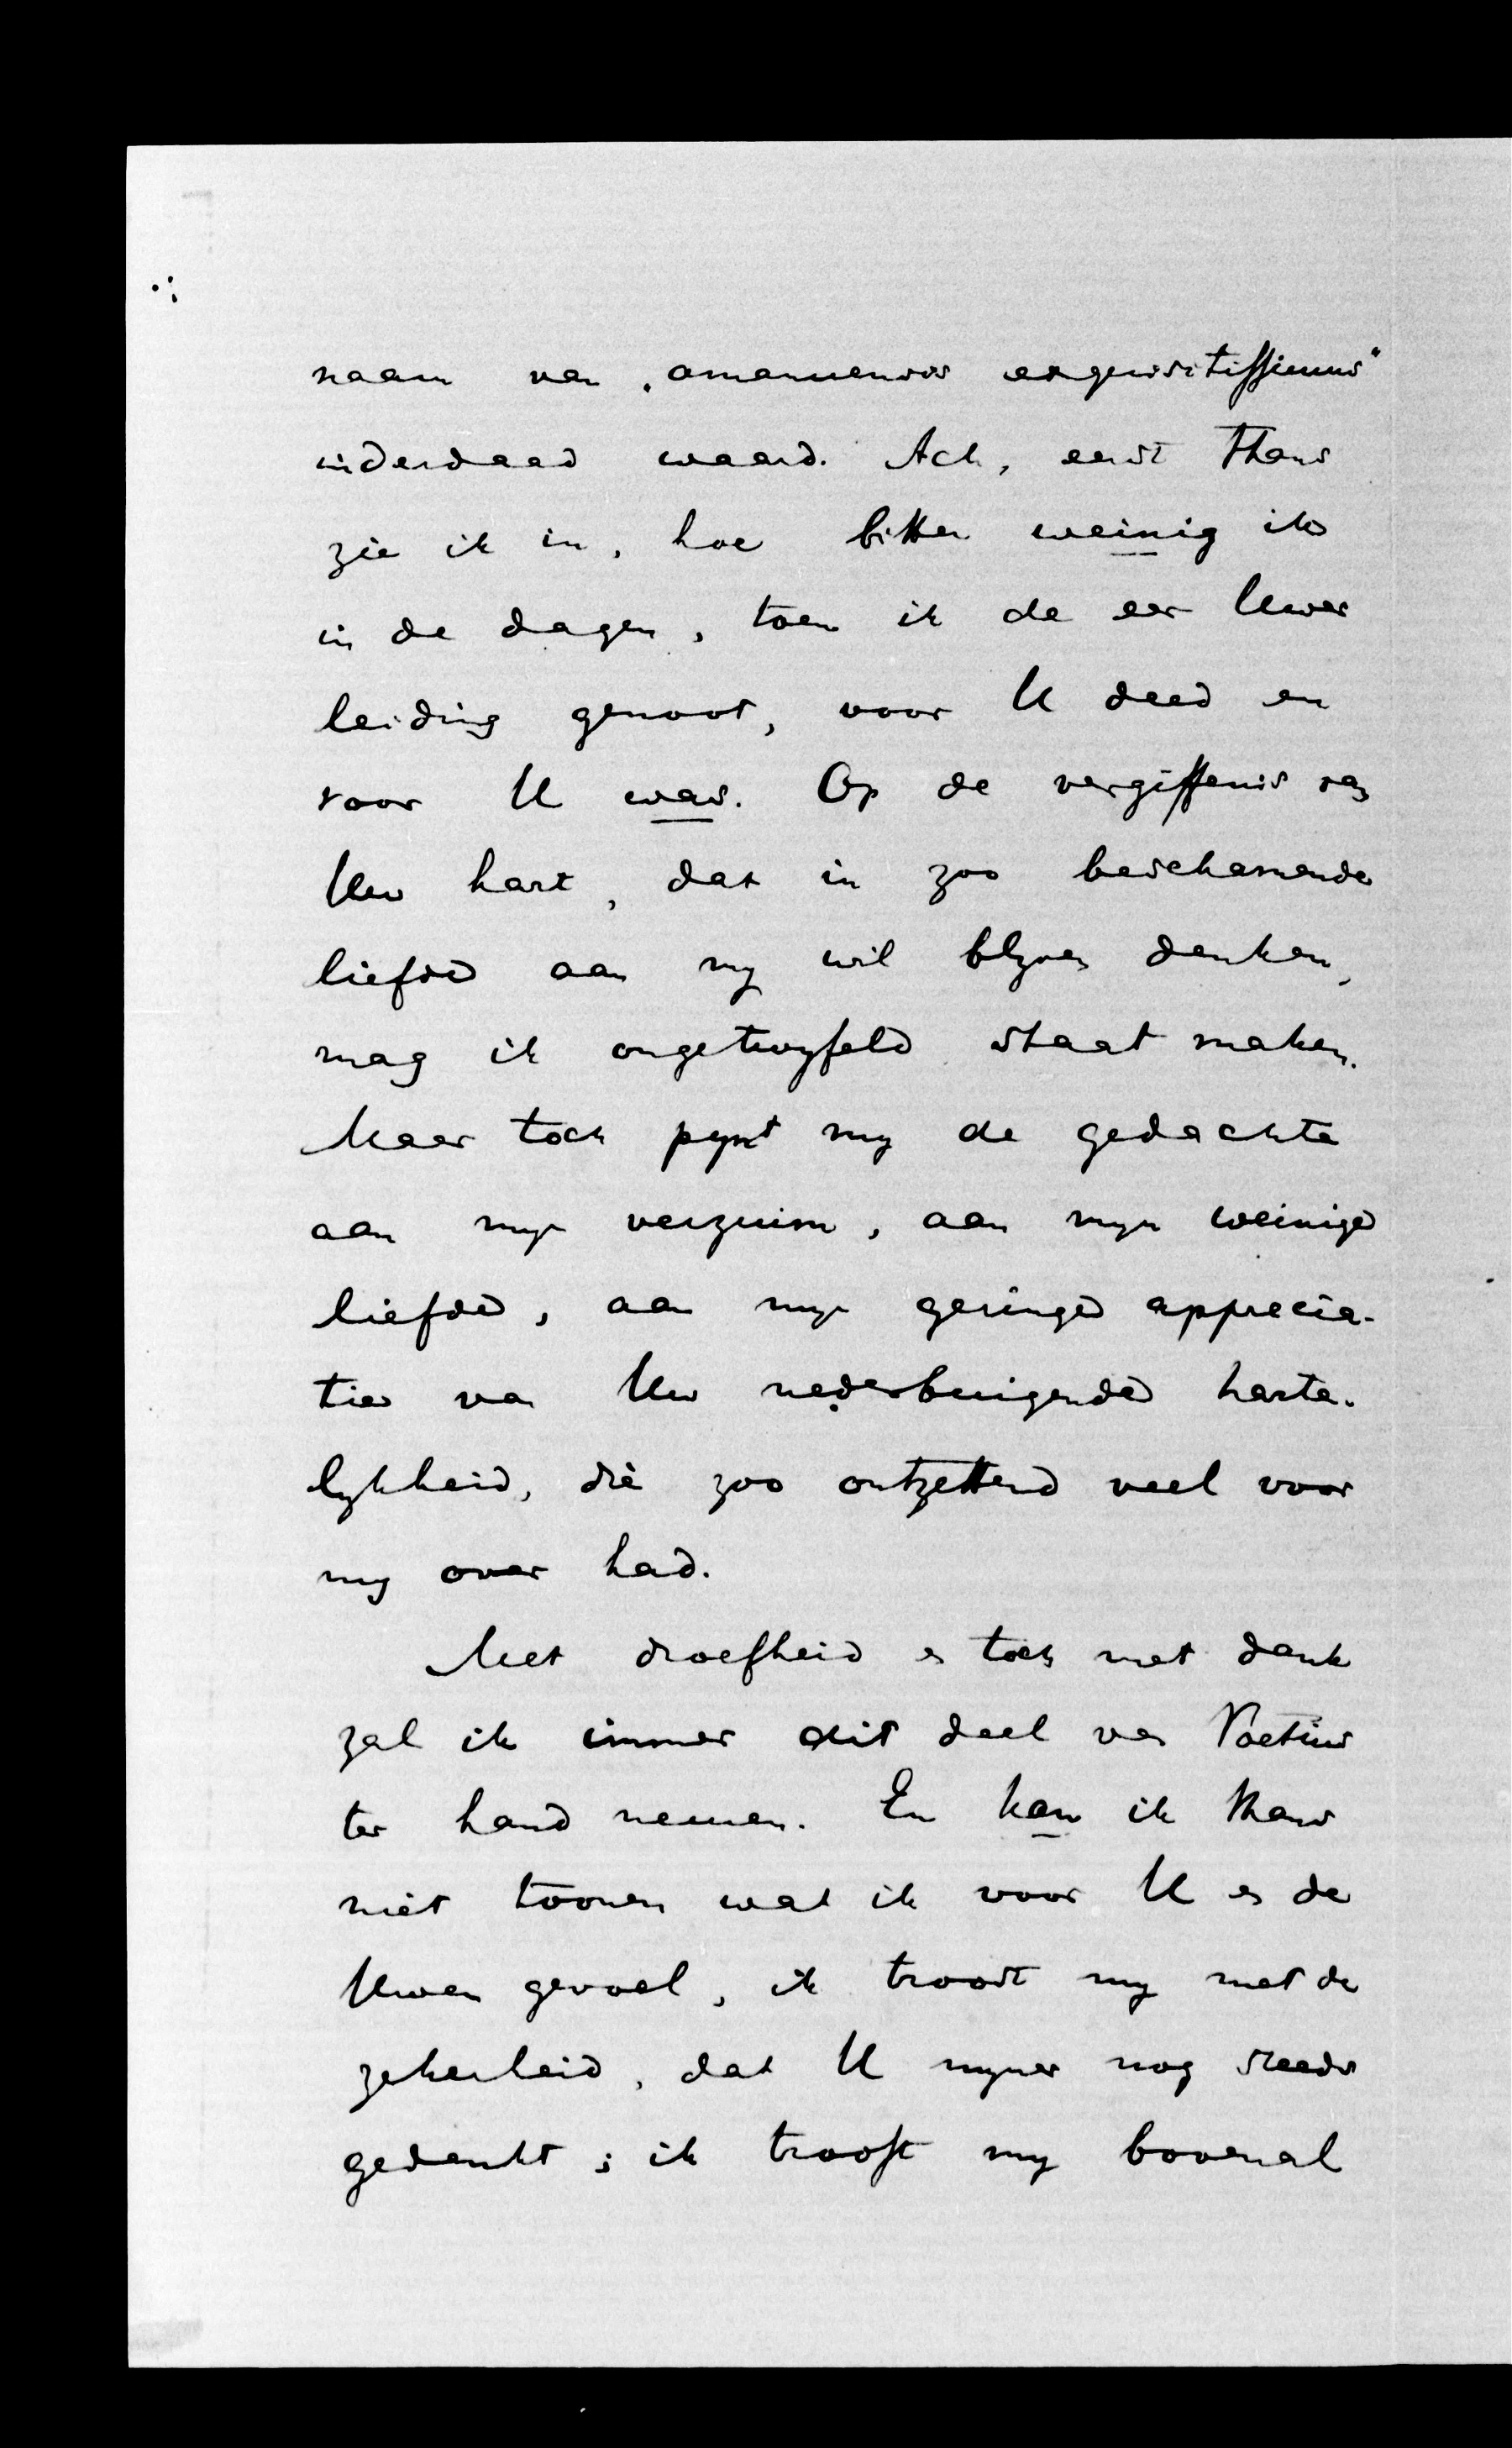 naam van „amanuensis exquisitissimus"
inderdaad waard. Ach, eerst thans
zie ik in, hoe bitter weinig ik
in de dagen, toen ik de eer Uwer
leiding genoot, voor U deed en
voor U was. Op de vergiffenis van
Uw hart, dat in zoo beschamende
liefde aan my wil blyven denken,
mag ik ongetwyfeld staat maken.
Maar toch pynt my de gedachte
aan myn verzuim, aan myn weinige
liefde, aan myn geringe apprecia-
tie van Uw nederbuigende harte-
lykheid, die zoo ontzettend veel voor
my over had.
Met droefheid en toch met dank
zal ik immer dit deel van Voetius
ter hand nemen. En kan ik thans
niet toonen wat ik voor U en de
Uwen gevoel, ik troost my met de
zekerheid, dat U myner nog steeds
gedenkt; ik troost my bovenal